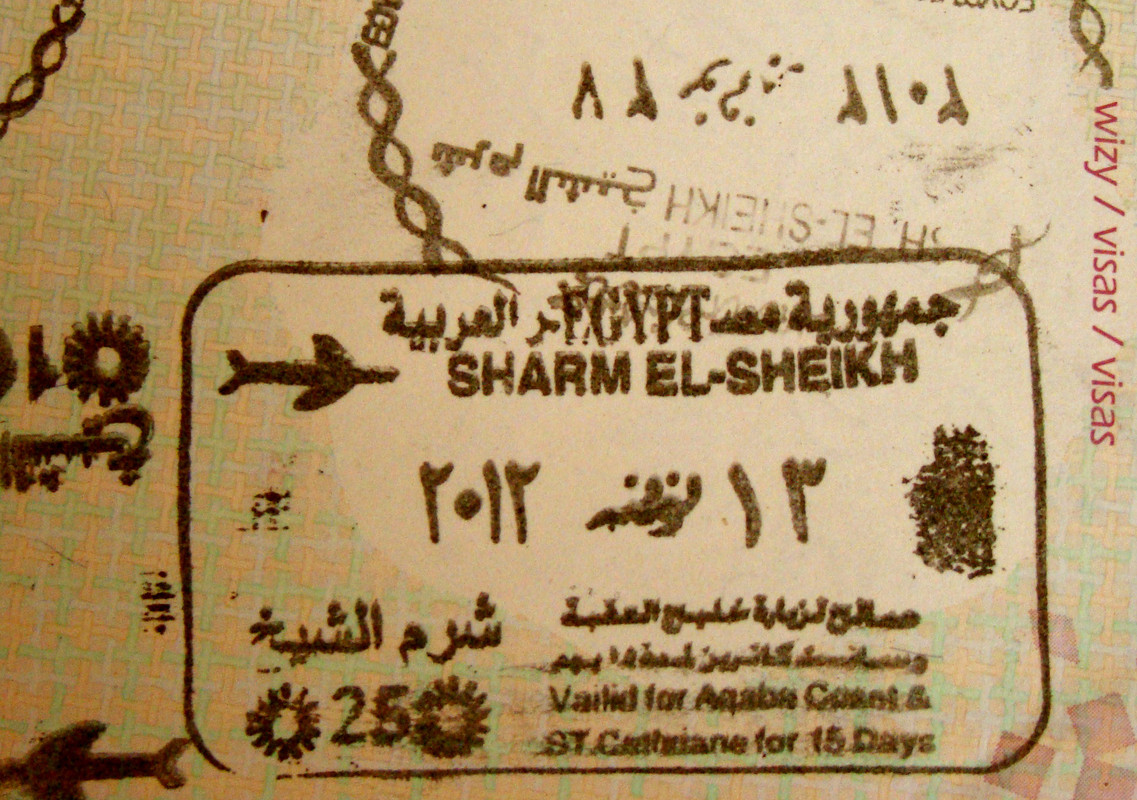 ٢٧ ٢٠١٢
شرم الشيخ
EL-SHEIKH
EGYPT
جمهورية مصر العربية
EGYPT
SHARM EL-SHEIKH
١٣ نوفمبر ٢٠١٢
شرم الشيخ
25
صالح لزيارة خليج العقبة
وسانت كاترين لمدة ١٥ يوم
Vailid for Aqaba Coast &
ST.Cathriane for 15 Days
wizy / visas / visas